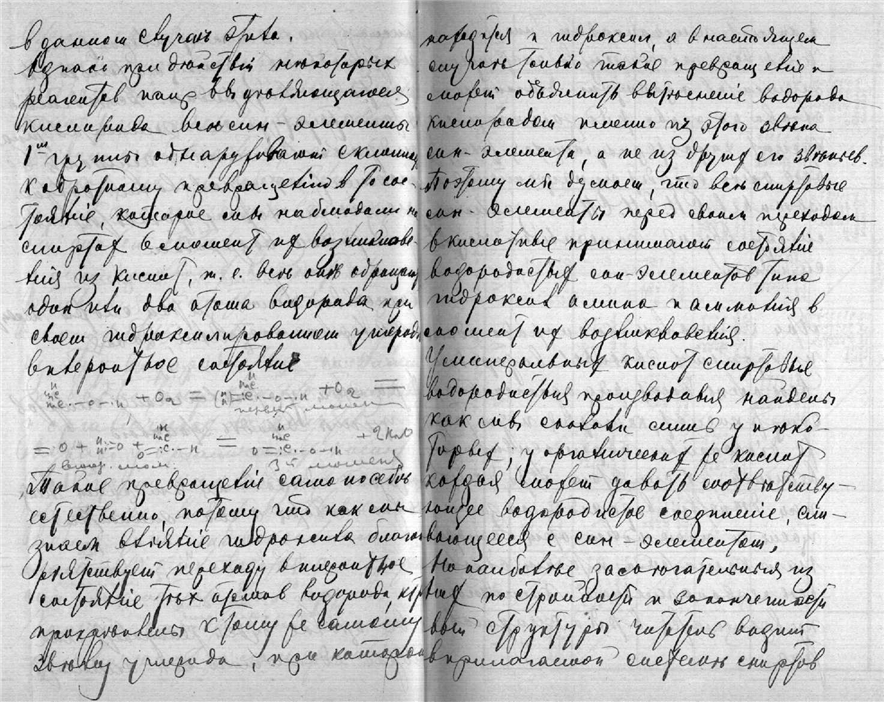 в данном случаѣ этого.
Однако при дѣйствіи некоторыхъ
реагентовъ напр. выдѣляющагося
кислорода всѣ син-элементы
1ой группы обнаруживаютъ склонность
къ обратному превращенію въ то сос-
тояніе, которое мы наблюдали на
спиртах в моментъ их возникнове-
нія из кислот, т. е. всѣ они обращаютъ
один или два атома водорода при
своем гидроксилированіи углерода
в инертное состояніе
+ O2 = + O2 =
первый момент
= O + =
втор. мом. 3й момент
Такое превращеніе само по себѣ
естественно, потому что как мы
знаем вліяніе гидроксила благоп-
рятствует переходу в инертное
состояніе тѣх атомов водорода, ктр
принадлежатъ к тому же самому
звѣну углерода, при котором
находится и гидроксил, а в настоящем
случаѣ только такое превращеніе и
может объяснить вытѣсненіе водорода
кислородом именно из этого звѣна
син-элемента, а не из других его звѣньев.
Поэтому мы думаем, что всѣ спиртовые
син-элементы перед своим переходом
в кислотные принимают состояніе
водородистых син-элементов типа
гидроксил амина и аммонія в
момент их возникновенія.
У минеральных кислот спиртовыя
водородистыя производныя найдены
как мы сказали лишь у нѣко-
торых; у органических же кислот
каждая может давать соотвѣтству-
ющее водородистое соединеніе, сли-
вающееся с син-элементом.
Но наиболѣе засамогательныя из
них по стройности и законченности
структуры читатель видит
в прилагаемой системѣ спиртов